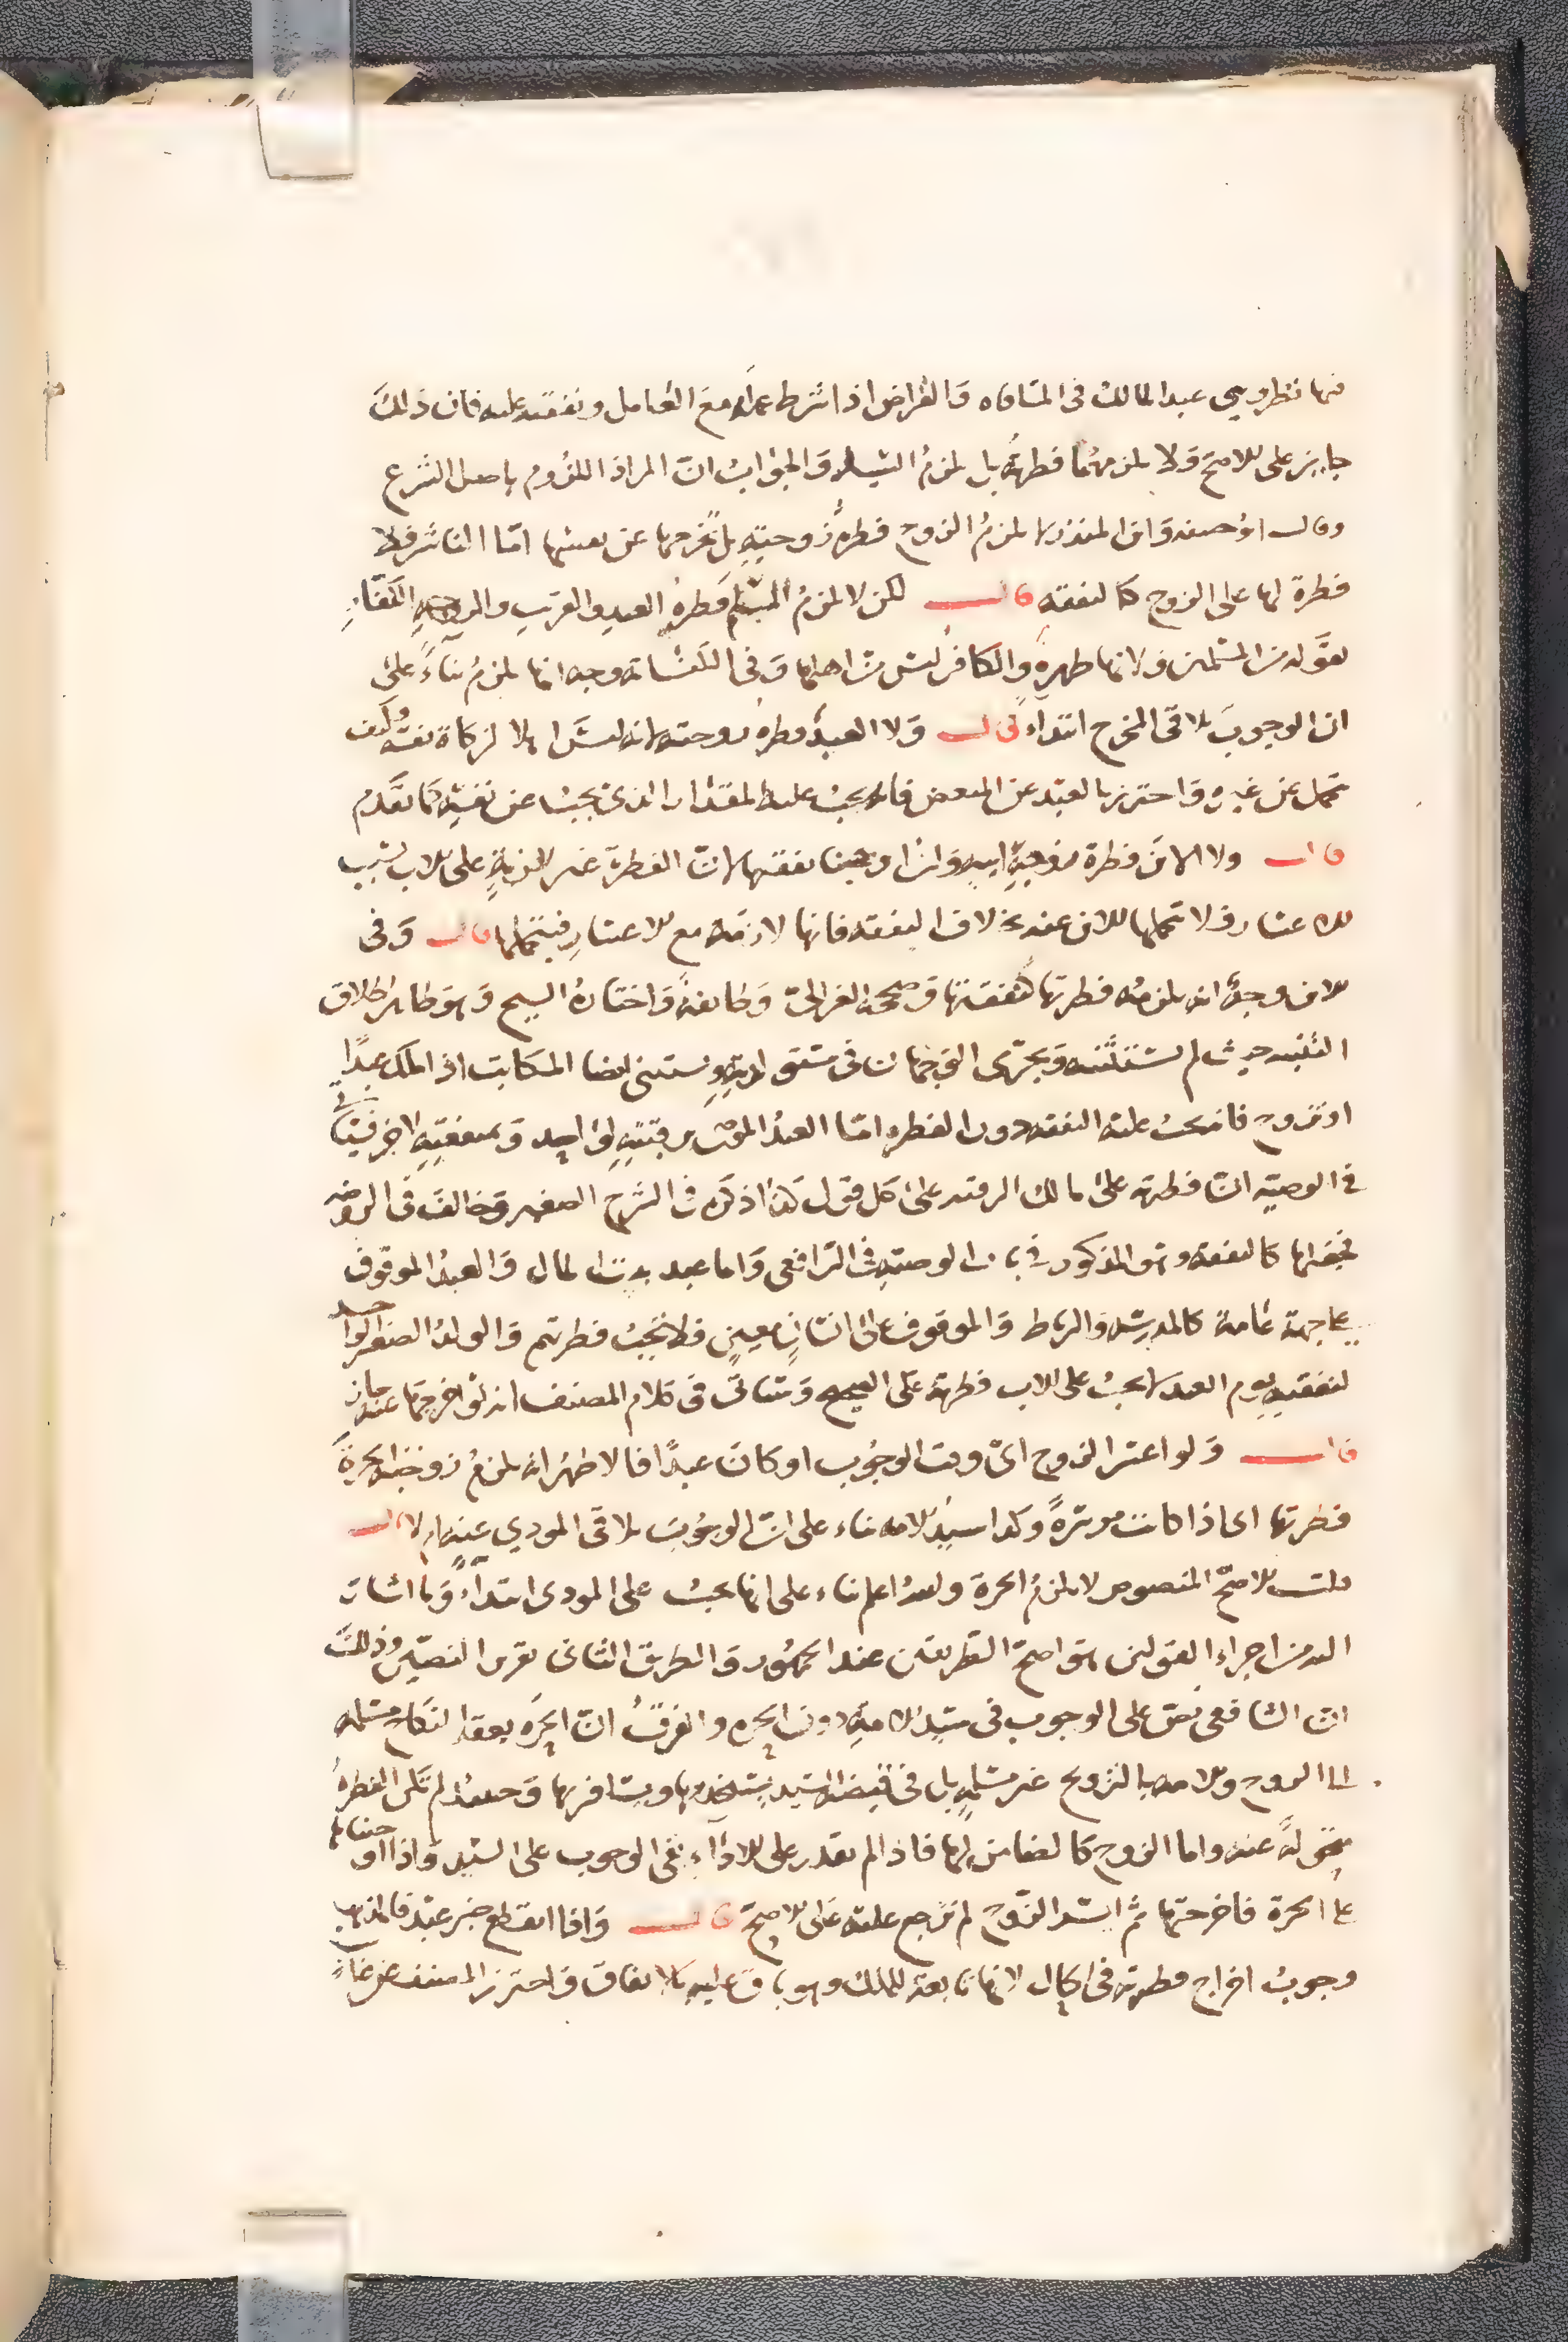 فيها نظر وهي عبد المالك في المساقاه والقراض اذا شرط عمله مع العامل ونفقته عليه فان ذلك
جايز على الاصح ولا يلزمهما فطرته بل يلزم السيد والجواب ان المراد اللزوم باصل الشرع
وقال ابو حنيفه وابن المنذر لا يلزم الزوج فطرة زوجته بل تخرجها عن نفسها امّا الناشز فلا
فطرة لها على الزوج كالنفقه قال لكن لا يلزم المسلم فطرة العبد والقريب والزوجه الكفّار
لقوله من المسلمين ولانها طهرة والكافر ليس من اهلها وفي الثلاثة وجه انها يلزم بناءً على
ان الوجوب يلاقي المخرج ابتداءً قال ولا العبد فطرة زوجته لانه ليس اهلا لزكاة نفسه وكيف
تحمل عن غيره واحترز بالعبد عن المبعض فانه يجب عليه المقدار الذي يجب عن نفسه كما تقدم
قال ولا الابن فطرة زوجة ابيه وان اوجبنا نفقتها لان الفطرة غير لازمة على الاب بسبب
الاعسار فلا تحملها الابن عنه بخلاف النفقه فانها لازمة مع الاعسار فيتحملها قال وفي
الابن وجه انه يلزمه فطرتها كنفقتها وصححه الغزالي وطائفة واختاره الشيخ وهو ظاهر اطلاق
التنبيه حيث لم يستثنه ويجري الوجهان في مستولدته ويستثنى ايضا المكاتب اذا ملك عبدًا
او تزوج فانه تجب عليه النفقه دون الفطره امّا العبد الموصى برقبته لواحد وبمنفعته لاخر فسياتي
في الوصيه ان فطرته على مالك الرقبه على كل قول كذا ذكره في الشرح الصغير وخالف في الروضه
فجعلها كالنفقه وهو المذكور في باب الوصيه في الرافعي واما عبد بيت المال والعبد الموقوف
على جهة عامة كالمدرسه والرباط والموقوف على انسان معين فلا تجب فطرتهم والولد الصغير الواجد
لنفقته يوم العيد لا يجب على الاب فطرته على الصحيح وسياتي في كلام المصنف انه لو اخرجها عنه جاز
قال ولو اعسر الزوج اي وقت الوجوب او كان عبدًا فالاظهر انه يلزم زوجته الحرة
فطرتها اي اذا كانت موسرةً وكذا سيد الامه بناء على ان الوجوب يلاقي المودي عنه اولا قال
قلت الاصح المنصوص لا يلزم الحرة والله اعلم بناء على انها تجب على المودي ابتداءً وما اشار
اليه من اجراء القولين هو اصح الطريقين عند الجمهور والطريق الثاني تقرير النصين وذلك
ان الشافعي نص على الوجوب في سيد الامة دون الحره والفرق ان الحره بعقد النكاح مسلمه
الى الزوج والامه بالتزويج غير مسلمة بل في قبضة السيد يستخدمها ويسافر بها وحينئذ لم تكن الفطرة
متحولة عنه وانما الزوج كالضامن لها فاذا لم يقدر على الاداء بقي الوجوب على السيد واذا اوجبناها
على الحرة فاخرجتها ثم ايسر الزوج لم ترجع عليه على الاصح قال واذا انقطع خبر عبد فالمذهب
وجوب اخراج فطرته في الحال لانها تابعة للملك وهو باق عليه بالاتفاق واحترز المصنف